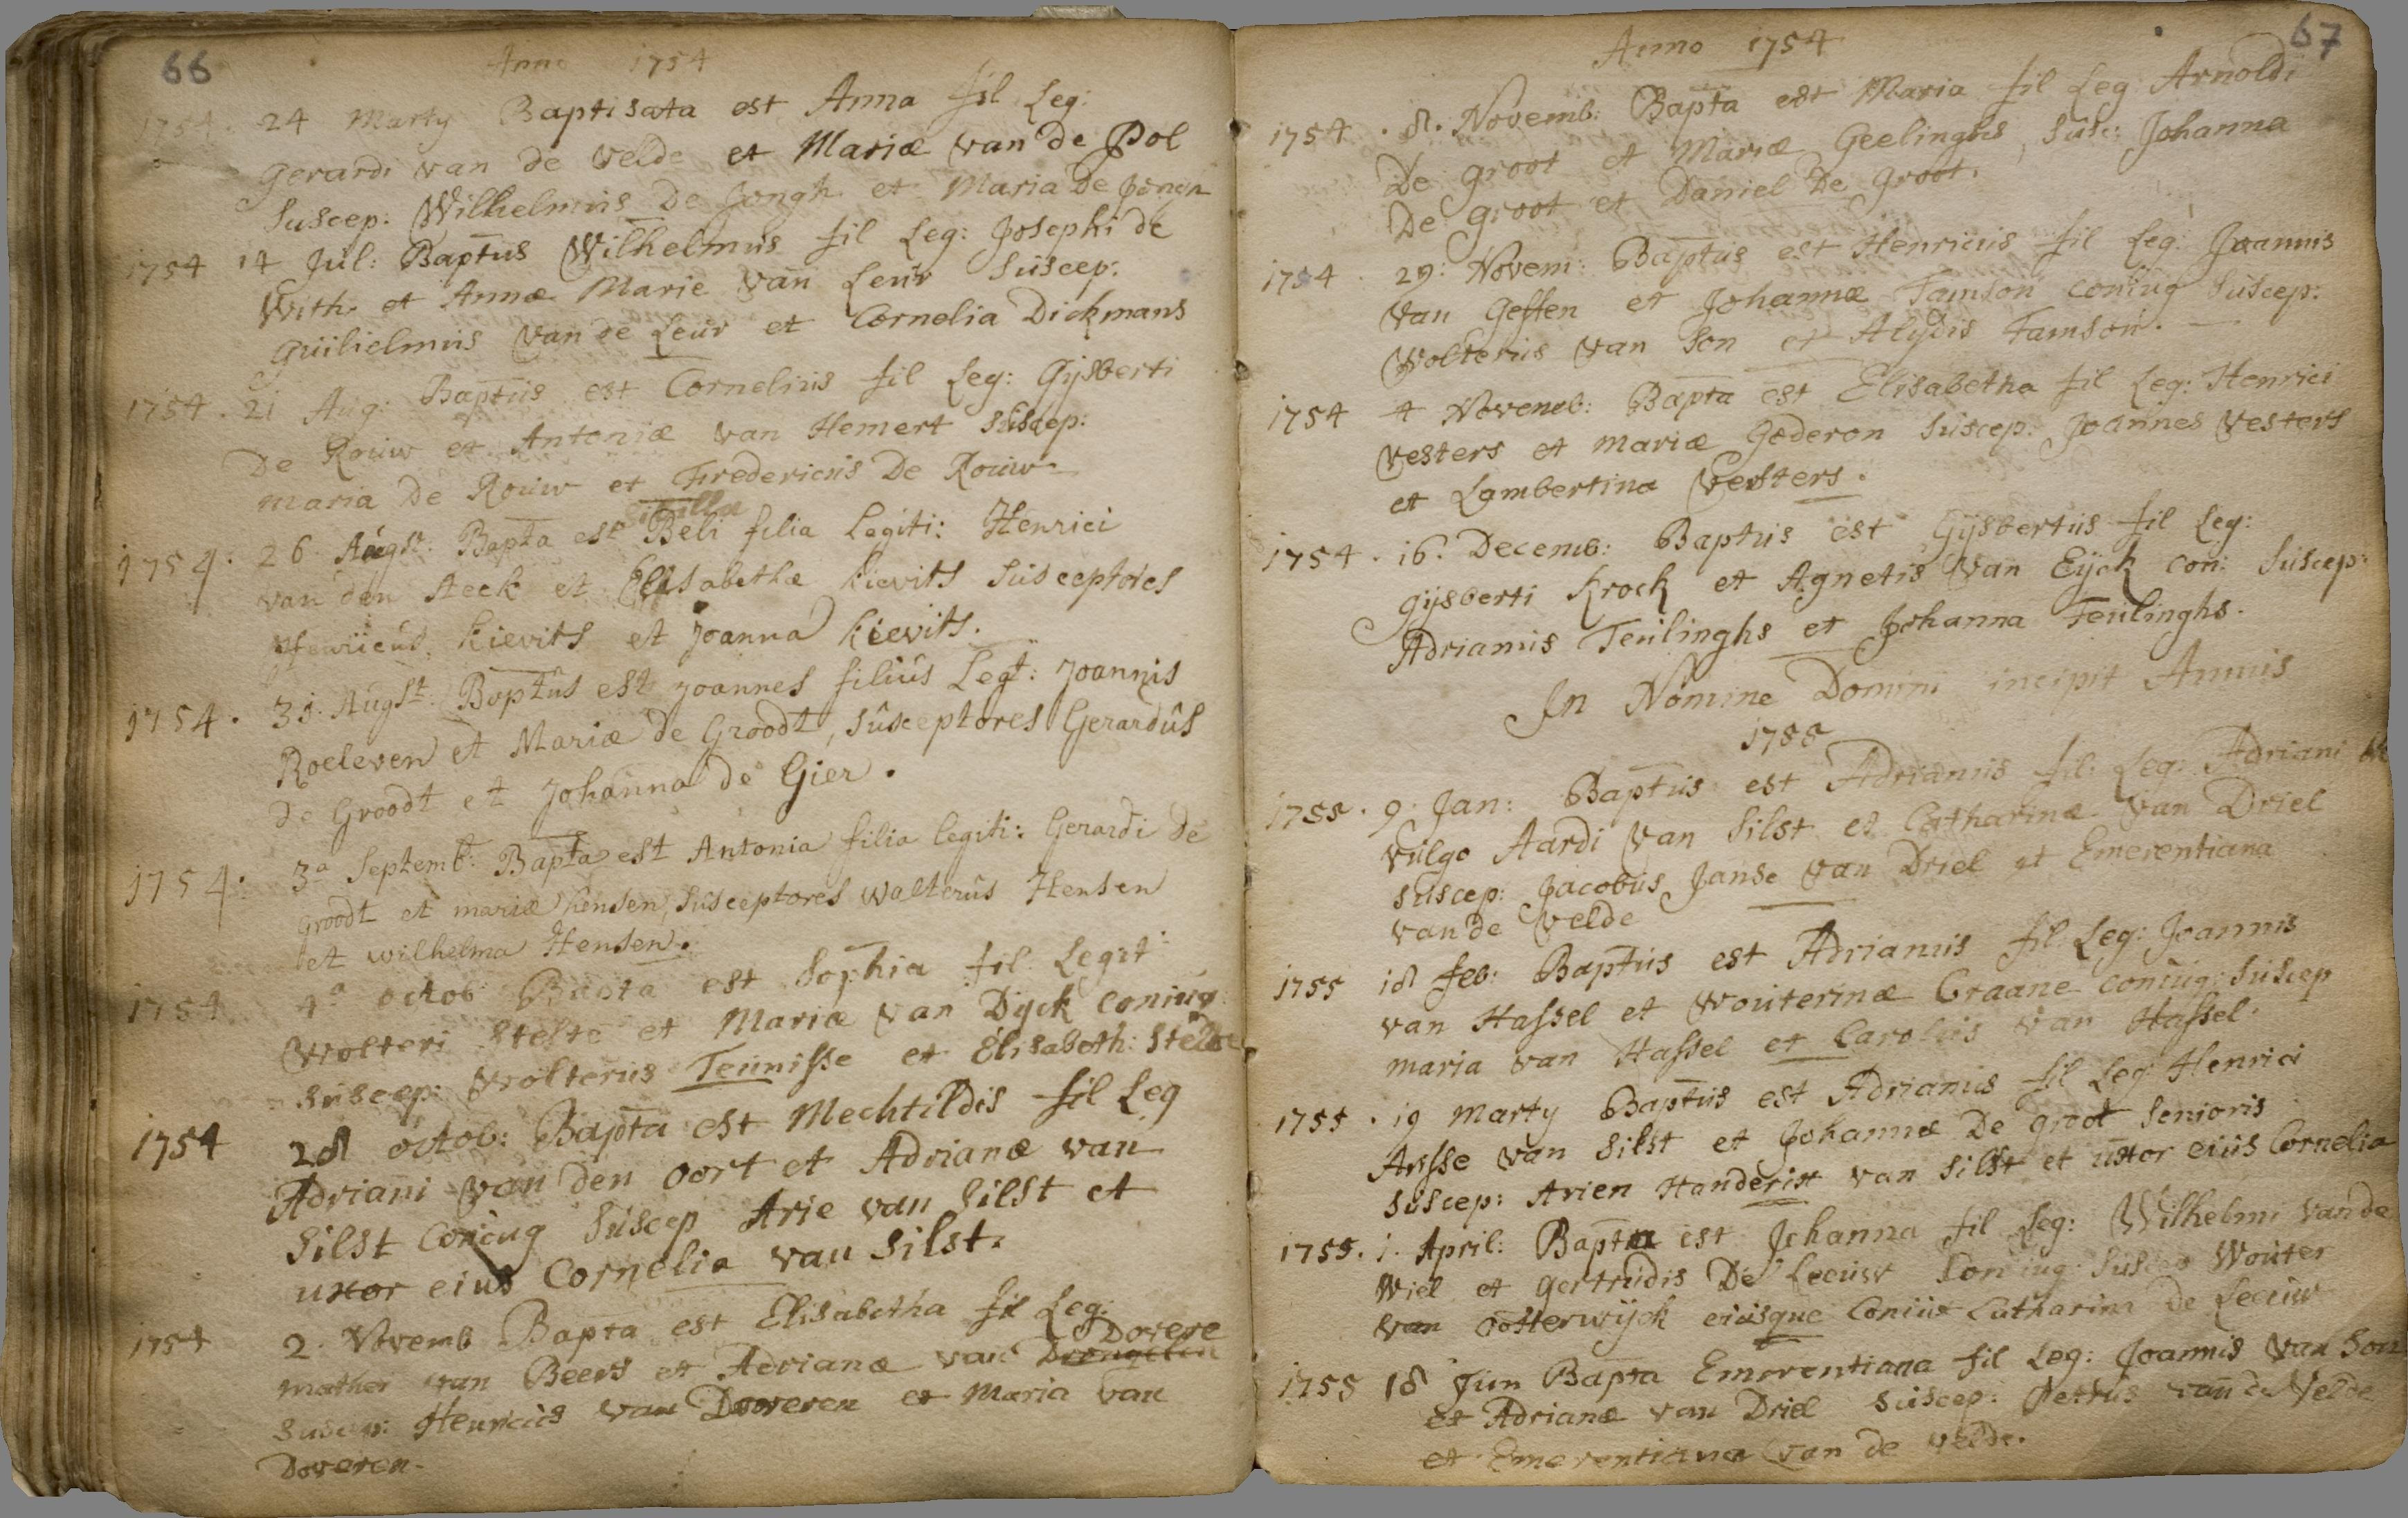 66
Anno 1754
1754. 24 Marty Baptisata est Anna fil Leg:
Gerardi van de velde et Mariæ van de Pol
Suscep: Wilhelmus De Jongh et Maria De Jongh
1754 14 Jul: Baptus Wilhelmus fil Leg: Josephi de
With et Annæ Marie van Leur Suscep:
Guilielmus van de Leur et Cornelia Dickmans
1754. 21 Aug: Baptus est Cornelius fil Leg: Gijsberti
De Rouw et Antoniæ van Hemert Suscep:
Maria De Rouw et Fredericus De Rouw
1754. 26 Augst: Bapta est Beli filia Legiti: Henrici
van den Aeck et Elisabethæ Kievits Susceptores
Henricus Kievits et Joanna Kievits.
1754. 31. Augst. Baptus est Joannes filius Legt: Joannis
Roeleven et Mariæ de Groodt, Susceptores Gerardus
de Groodt et Johanna de Gier.
1754. 3a Septemb: Bapta est Antonia filia legiti: Gerardi De
groodt et mariæ hensen, Susceptores Walterus Hensen
et wilhelma Hensen.
1754 4a octob Bapta est Sophia fil Legit:
Wolteri Stelte et Mariæ van Dijck coniug:
Suscep: Wolterus Teunisse et Elisabeth: Stelte
1754 28 octob: Bapta est Mechtildis fil Leg
Adriani van den oort et Adrianæ van
Silst coniug Suscep Arie van Silst et
uxor eius Cornelia van Silst.
1754 2. Novemb Bapta est Elisabetha fil Leg:
Mathei van Beers et Adrianæ van Drongelen Dovere
Suscep: Henricus van Doveren et Maria van
Doveren.
67
Anno 1754
1754. 8. Novemb: Bapta est Maria fil Leg Arnoldi
De groot et Mariæ Geelinghs, Susc: Johanna
De groot et Daniel De groot.
1754. 29: Novem: Baptus est Henricus fil Leg: Joannis
van Geffen et Johannæ Tamson coniug Suscep:
Wolterus van Son et Alydis Tamson.
1754 4 Novemb: Bapta est Elisabetha fil Leg: Henrici
Vesters et mariæ Goderon Suscep: Joannes Vesters
et Lambertina Vesters.
1754. 16. Decemb: Baptus est Gijsbertus fil Leg:
Gijsberti Krock et Agnetis van Eijck con: Suscep:
Adrianus Teulinghs et Johanna Teulinghs.
In Nomine Domini incipit Annus
1755
1755. 9. Jan: Baptus est Adrianus fil: Leg: Adriani
vulgo Aardi van Silst et Catharinæ van Driel
Suscep: Jacobus Janse van Driel et Emerentiana
van de Velde
1755 18 feb: Baptus est Adrianus fil: Leg: Joannis
van Hassel et Wouterinæ Craane coniug: Suscep
maria van Hassel et Carolus van Hassel.
1755. 19 Marty Baptus est Adrianus fil Leg: Henrici
Arisse van Silst et Johannæ De groot Senioris
Suscep: Arien Handerix van Silst et uxor eius Cornelia
1755. 1. April: Bapta est Johanna fil Leg: Wilhelmi van de
Wiel et Gertrudis De Leeuw Coniug: Suscep Wouter
van oosterwijck eiusque Coniux Catharina de Leeuw
1755 18 Jun Bapta Emerentiana fil Leg: Joannis van Son
et Adrianæ van Driel Suscep: Petrus van de Velde
et Emerentiana van de Velde.